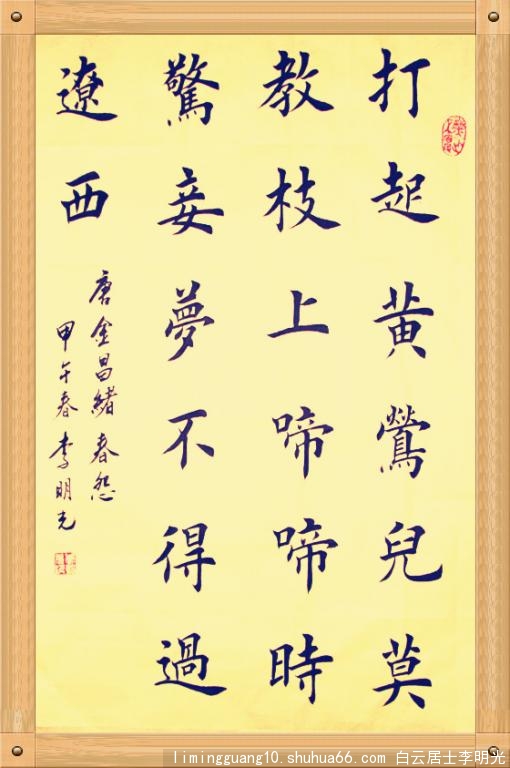 打起黄鶯兒莫
教枝上啼啼時
驚妾夢不得過
遼西
唐金昌緒春怨
甲午春李明光
limingguang10.shuhua66.com 白云居士李明光